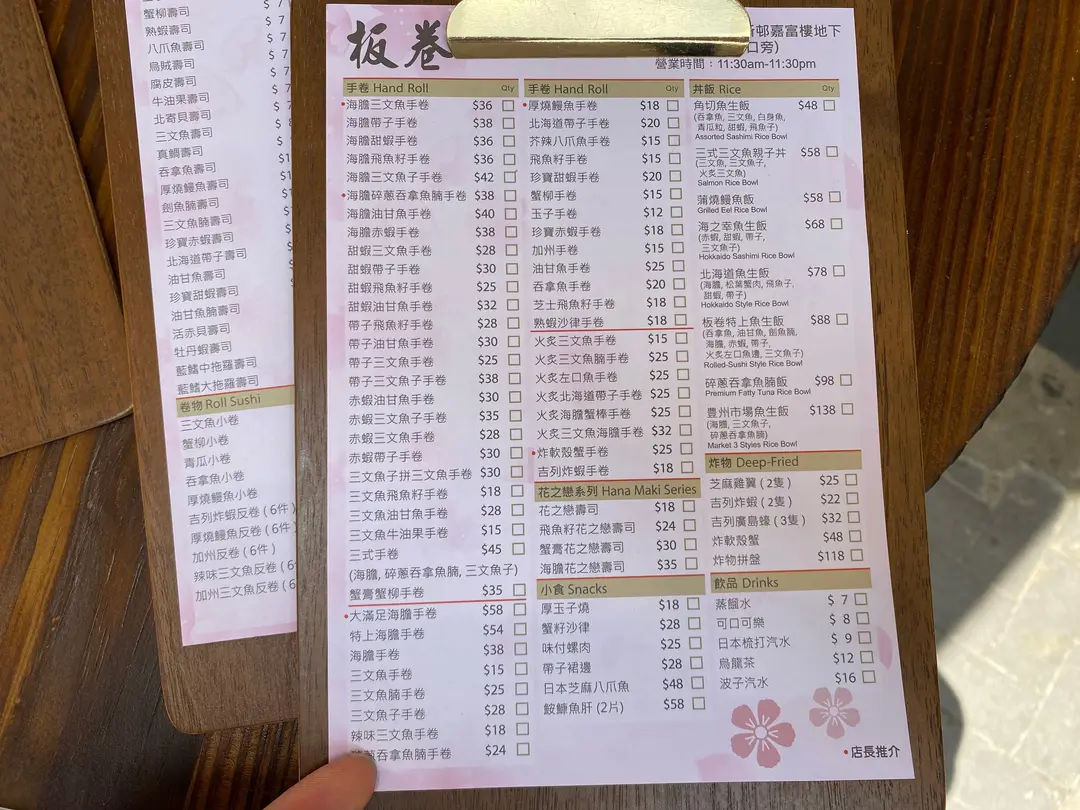 蟹柳壽司 $ 7
熟蝦壽司 $ 7
八爪魚壽司 $ 7
烏賊壽司 $ 7
腐皮壽司 $ 7
牛油果壽司 $ 7
北寄貝壽司
三文魚壽司
真鯛壽司
吞拿魚壽司
厚燒鰻魚壽司
劍魚腩壽司
三文魚腩壽司
珍寶赤蝦壽司
北海道帶子壽司
油甘魚壽司
珍寶甜蝦壽司
油甘魚腩壽司
活赤貝壽司
牡丹蝦壽司
藍鰭中拖羅壽司
藍鰭大拖羅壽司
卷物 Roll Sushi
三文魚小卷
蟹柳小卷
青瓜小卷
吞拿魚小卷
厚燒鰻魚小卷
吉列炸蝦反卷 ( 6件 )
厚燒鰻魚反卷 ( 6件
加州反卷 ( 6件 )
辣味三文魚反卷 ( 6
加州三文魚反卷 ( 6
板卷
邨嘉富樓地下
口旁)
營業時間：11:30am-11:30pm
手卷 Hand Roll Qty
•海膽三文魚手卷 $36
海膽帶子手卷 $38
海膽甜蝦手卷 $36
海膽飛魚籽手卷 $36
海膽三文魚子手卷 $42
•海膽碎蔥吞拿魚腩手卷 $38
海膽油甘魚手卷 $40
海膽赤蝦手卷 $38
甜蝦三文魚手卷 $28
甜蝦帶子手卷 $30
甜蝦飛魚籽手卷 $25
甜蝦油甘魚手卷 $32
帶子飛魚籽手卷 $28
帶子油甘魚手卷 $30
帶子三文魚手卷 $25
帶子三文魚子手卷 $38
赤蝦油甘魚手卷 $30
赤蝦三文魚子手卷 $35
赤蝦三文魚手卷 $28
赤蝦帶子手卷 $30
三文魚子拼三文魚手卷 $30
三文魚飛魚籽手卷 $18
三文魚油甘魚手卷 $28
三文魚牛油果手卷 $15
三式手卷 $45
(海膽, 碎蔥吞拿魚腩, 三文魚子)
蟹膏蟹柳手卷 $35
•大滿足海膽手卷 $58
特上海膽手卷 $54
海膽手卷 $38
三文魚手卷 $15
三文魚腩手卷 $25
三文魚子手卷 $28
辣味三文魚手卷 $18
蔥吞拿魚腩手卷 $24
手卷 Hand Roll Qty
•厚燒鰻魚手卷 $18
北海道帶子手卷 $20
芥辣八爪魚手卷 $15
飛魚籽手卷 $15
珍寶甜蝦手卷 $20
蟹柳手卷 $15
玉子手卷 $12
珍寶赤蝦手卷 $18
加州手卷 $15
油甘魚手卷 $25
吞拿魚手卷 $20
芝士飛魚籽手卷 $18
熟蝦沙律手卷 $18
火炙三文魚手卷 $15
火炙三文魚腩手卷 $25
火炙左口魚手卷 $25
火炙北海道帶子手卷 $25
火炙海膽蟹棒手卷 $25
火炙三文魚海膽手卷 $32
•炸軟殼蟹手卷 $25
吉列炸蝦手卷 $18
花之戀系列 Hana Maki Series
花之戀壽司 $18
飛魚籽花之戀壽司 $24
蟹膏花之戀壽司 $30
海膽花之戀壽司 $35
小食 Snacks
厚玉子燒 $18
蟹籽沙律 $28
味付螺肉 $25
帶子裙邊 $28
日本芝麻八爪魚 $48
鮟鱇魚肝 (2片) $58
丼飯 Rice Qty
角切魚生飯 $48
(吞拿魚, 三文魚, 白身魚,
青瓜粒, 甜蝦, 飛魚子)
Assorted Sashimi Rice Bowl
三式三文魚親子丼 $58
(三文魚, 三文魚子,
火炙三文魚)
Salmon Rice Bowl
蒲燒鰻魚飯 $58
Grilled Eel Rice Bowl
海之幸魚生飯 $68
(赤蝦, 甜蝦, 帶子,
三文魚子)
Hokkaido Sashimi Rice Bowl
北海道魚生飯 $78
(海膽, 松葉蟹肉, 飛魚子,
甜蝦, 帶子)
Hokkaido Style Rice Bowl
板卷特上魚生飯 $88
(吞拿魚, 油甘魚, 劍魚腩,
海膽, 赤蝦, 帶子,
火炙左口魚邊, 三文魚子)
Rolled-Sushi Style Rice Bowl
碎蔥吞拿魚腩飯 $98
Premium Fatty Tuna Rice Bowl
豐州市場魚生飯 $138
(海膽, 三文魚子,
碎蔥吞拿魚腩)
Market 3 Styles Rice Bowl
炸物 Deep-Fried
芝麻雞翼 ( 2隻 ) $25
吉列炸蝦 ( 2隻 ) $22
吉列廣島蠔 ( 3隻 ) $32
炸軟殼蟹 $48
炸物拼盤 $118
飲品 Drinks
蒸餾水 $ 7
可口可樂 $ 8
日本梳打汽水 $ 9
烏龍茶 $12
波子汽水 $16
•店長推介